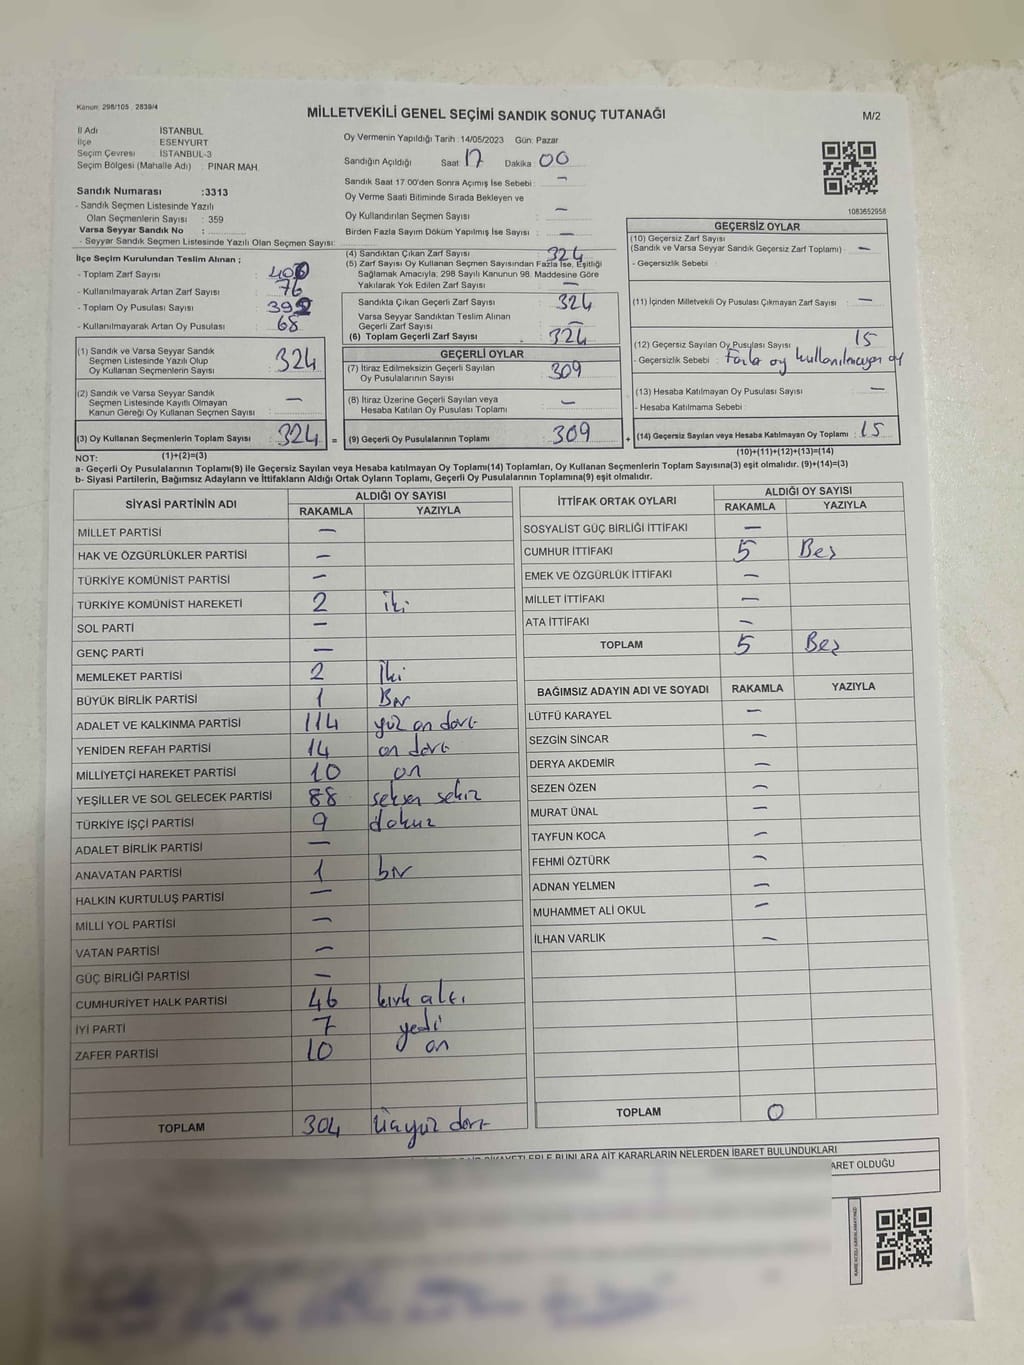 Kanun: 298/105 , 2839/4
MİLLETVEKİLİ GENEL SEÇİMİ SANDIK SONUÇ TUTANAĞI
M/2
İl Adı İSTANBUL
İlçe ESENYURT
Seçim Çevresi İSTANBUL-3
Seçim Bölgesi (Mahalle Adı) : PINAR MAH.
Sandık Numarası :3313
- Sandık Seçmen Listesinde Yazılı
Olan Seçmenlerin Sayısı : 359
Varsa Seyyar Sandık No :
- Seyyar Sandık Seçmen Listesinde Yazılı Olan Seçmen Sayısı:
Oy Vermenin Yapıldığı Tarih :14/05/2023 Gün: Pazar
Sandığın Açıldığı Saat 17 Dakika : 00
Sandık Saat 17 00'den Sonra Açımış İse Sebebi : —
Oy Verme Saati Bitiminde Sırada Bekleyen ve
Oy Kullandırılan Seçmen Sayısı —
Birden Fazla Sayım Döküm Yapılmış İse Sayısı : —
1083652958
İlçe Seçim Kurulundan Teslim Alınan ;
- Toplam Zarf Sayısı : 400
- Kullanılmayarak Artan Zarf Sayısı : 76
- Toplam Oy Pusulası Sayısı : 392
- Kullanılmayarak Artan Oy Pusulası : 68
(1) Sandık ve Varsa Seyyar Sandık
Seçmen Listesinde Yazılı Olup
Oy Kullanan Seçmenlerin Sayısı : 324
(2) Sandık ve Varsa Seyyar Sandık
Seçmen Listesinde Kayıtlı Olmayan
Kanun Gereği Oy Kullanan Seçmen Sayısı : —
(3) Oy Kullanan Seçmenlerin Toplam Sayısı : 324
(4) Sandıktan Çıkan Zarf Sayısı : 324
(5) Zarf Sayısı Oy Kullanan Seçmen Sayısından Fazla İse, Eşitliği
Sağlamak Amacıyla; 298 Sayılı Kanunun 98. Maddesine Göre
Yakılarak Yok Edilen Zarf Sayısı : —
Sandıkta Çıkan Geçerli Zarf Sayısı : 324
Varsa Seyyar Sandıktan Teslim Alınan
Geçerli Zarf Sayısı : —
(6) Toplam Geçerli Zarf Sayısı : 324
GEÇERLİ OYLAR
(7) İtiraz Edilmeksizin Geçerli Sayılan
Oy Pusulalarının Sayısı : 309
(8) İtiraz Üzerine Geçerli Sayılan veya
Hesaba Katılan Oy Pusulası Toplamı : —
= (9) Geçerli Oy Pusulalarının Toplamı : 309
GEÇERSİZ OYLAR
(10) Geçersiz Zarf Sayısı
(Sandık ve Varsa Seyyar Sandık Geçersiz Zarf Toplamı) : —
- Geçersizlik Sebebi :
(11) İçinden Milletvekili Oy Pusulası Çıkmayan Zarf Sayısı : —
(12) Geçersiz Sayılan Oy Pusulası Sayısı : 15
- Geçersizlik Sebebi : Fazla oy kullanılmayan oy
(13) Hesaba Katılmayan Oy Pusulası Sayısı : —
- Hesaba Katılmama Sebebi :
+ (14) Geçersiz Sayılan veya Hesaba Katılmayan Oy Toplamı : 15
NOT: (1)+(2)=(3)
(10)+(11)+(12)+(13)=(14)
a- Geçerli Oy Pusulalarının Toplamı(9) ile Geçersiz Sayılan veya Hesaba katılmayan Oy Toplamı(14) Toplamları, Oy Kullanan Seçmenlerin Toplam Sayısına(3) eşit olmalıdır. (9)+(14)=(3)
b- Siyasi Partilerin, Bağımsız Adayların ve İttifakların Aldığı Ortak Oyların Toplamı, Geçerli Oy Pusulalarının Toplamına(9) eşit olmalıdır.
SİYASİ PARTİNİN ADI ALDIĞI OY SAYISI
RAKAMLA YAZIYLA
MİLLET PARTİSİ —
HAK VE ÖZGÜRLÜKLER PARTİSİ —
TÜRKİYE KOMÜNİST PARTİSİ —
TÜRKİYE KOMÜNİST HAREKETİ 2 iki
SOL PARTİ —
GENÇ PARTİ —
MEMLEKET PARTİSİ 2 iki
BÜYÜK BİRLİK PARTİSİ 1 Bir
ADALET VE KALKINMA PARTİSİ 114 yüz on dört
YENİDEN REFAH PARTİSİ 14 on dört
MİLLİYETÇİ HAREKET PARTİSİ 10 on
YEŞİLLER VE SOL GELECEK PARTİSİ 88 seksen sekiz
TÜRKİYE İŞÇİ PARTİSİ 9 dokuz
ADALET BİRLİK PARTİSİ —
ANAVATAN PARTİSİ 1 bir
HALKIN KURTULUŞ PARTİSİ —
MİLLİ YOL PARTİSİ —
VATAN PARTİSİ —
GÜÇ BİRLİĞİ PARTİSİ —
CUMHURİYET HALK PARTİSİ 46 kırk altı
İYİ PARTİ 7 yedi
ZAFER PARTİSİ 10 on
TOPLAM 304 üçyüz dört
İTTİFAK ORTAK OYLARI ALDIĞI OY SAYISI
RAKAMLA YAZIYLA
SOSYALİST GÜÇ BİRLİĞİ İTTİFAKI —
CUMHUR İTTİFAKI 5 Beş
EMEK VE ÖZGÜRLÜK İTTİFAKI —
MİLLET İTTİFAKI —
ATA İTTİFAKI —
TOPLAM 5 Beş
BAĞIMSIZ ADAYIN ADI VE SOYADI RAKAMLA YAZIYLA
LÜTFÜ KARAYEL —
SEZGİN SİNCAR —
DERYA AKDEMİR —
SEZEN ÖZEN —
MURAT ÜNAL —
TAYFUN KOCA —
FEHMİ ÖZTÜRK —
ADNAN YELMEN —
MUHAMMET ALİ OKUL —
İLHAN VARLIK —
TOPLAM 0
BUNLARA AİT KARARLARIN NELERDEN İBARET BULUNDUKLARI
OLDUĞU